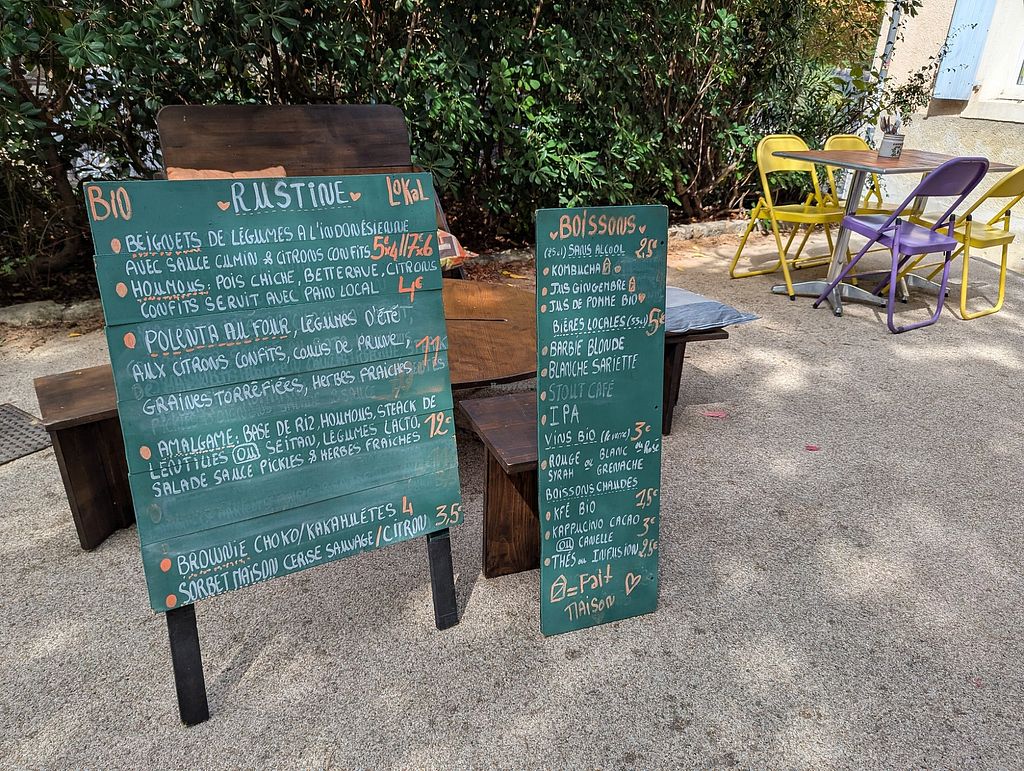 BIO RUSTINE LOKAL
BEIGNETS DE LÉGUMES A L'INDONÉSIENNE
AVEC SAUCE CUMIN & CITRONS CONFITS 5x4/7x6
HOUMOUS: POIS CHICHE, BETTERAVE, CITRONS
CONFITS SERVIT AVEC PAIN LOCAL 4€
POLENTA AU FOUR, LÉGUMES D'ÉTÉ
AUX CITRONS CONFITS, COULIS DE PRUNE, 11
GRAINES TORRÉFIÉES, HERBES FRAICHES
AMALGAME: BASE DE RIZ, HOUMOUS, STEACK DE
LENTILLES OU SEITAN, LÉGUMES LACTO, 12€
SALADE SAUCE PICKLES & HERBES FRAÎCHES
BROWNIE CHOKO/KAKAHUÈTES 4
SORBET MAISON CERISE SAUVAGE/CITRON 3,5€
BOISSONS
(25cl) SANS ALCOOL 2,5€
KOMBUCHA
JUS GINGEMBRE
JUS DE POMME BIO
BIÈRES LOCALES (33cl) 5€
BARBIE BLONDE
BLANCHE SARIETTE
STOUT CAFÉ
IPA
VINS BIO (le verre) 3€
ROUGE ou BLANC ou Rosé
SYRAH GRENACHE
BOISSONS CHAUDES
KFÉ BIO 1,5€
KAPPUCINO CACAO 3€
OU CANELLE
THÉS OU INFUSION 2,5€
=Fait
MAISON